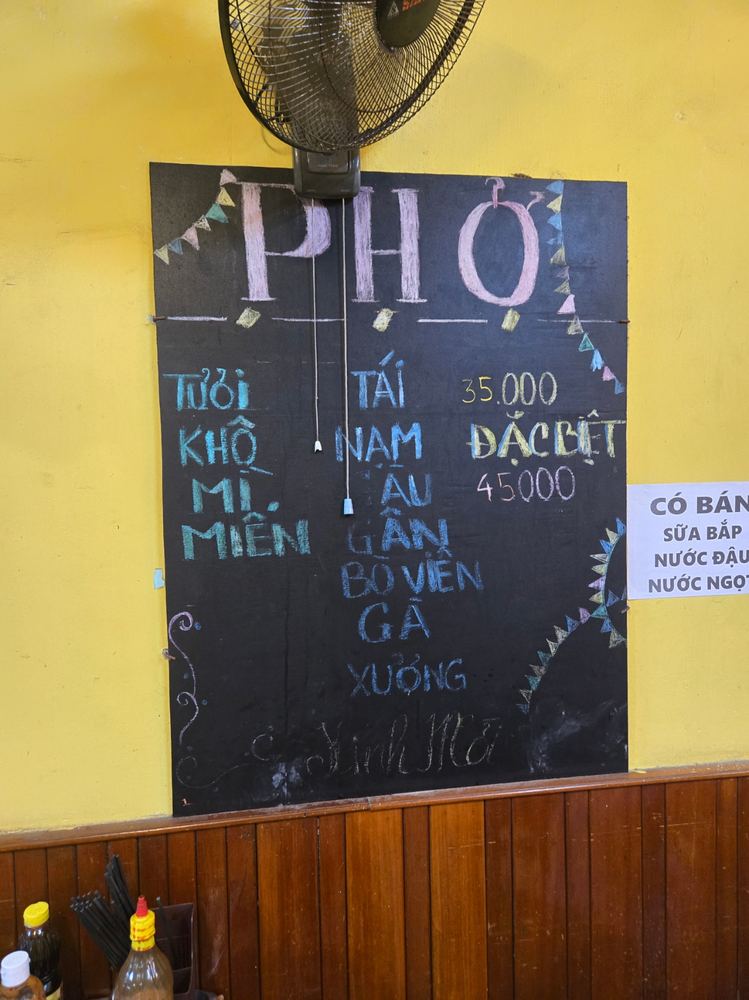 PHỞ
TƯƠI
KHÔ
MÌ
MIẾN
TÁI
NẠM
ẦU
GÂN
BÒ VIÊN
GÀ
XƯƠNG
35.000
ĐẶC BIỆT
45000
Kính Mời
CÓ BÁN
SỮA BẮP
NƯỚC ĐẬU
NƯỚC NGỌT